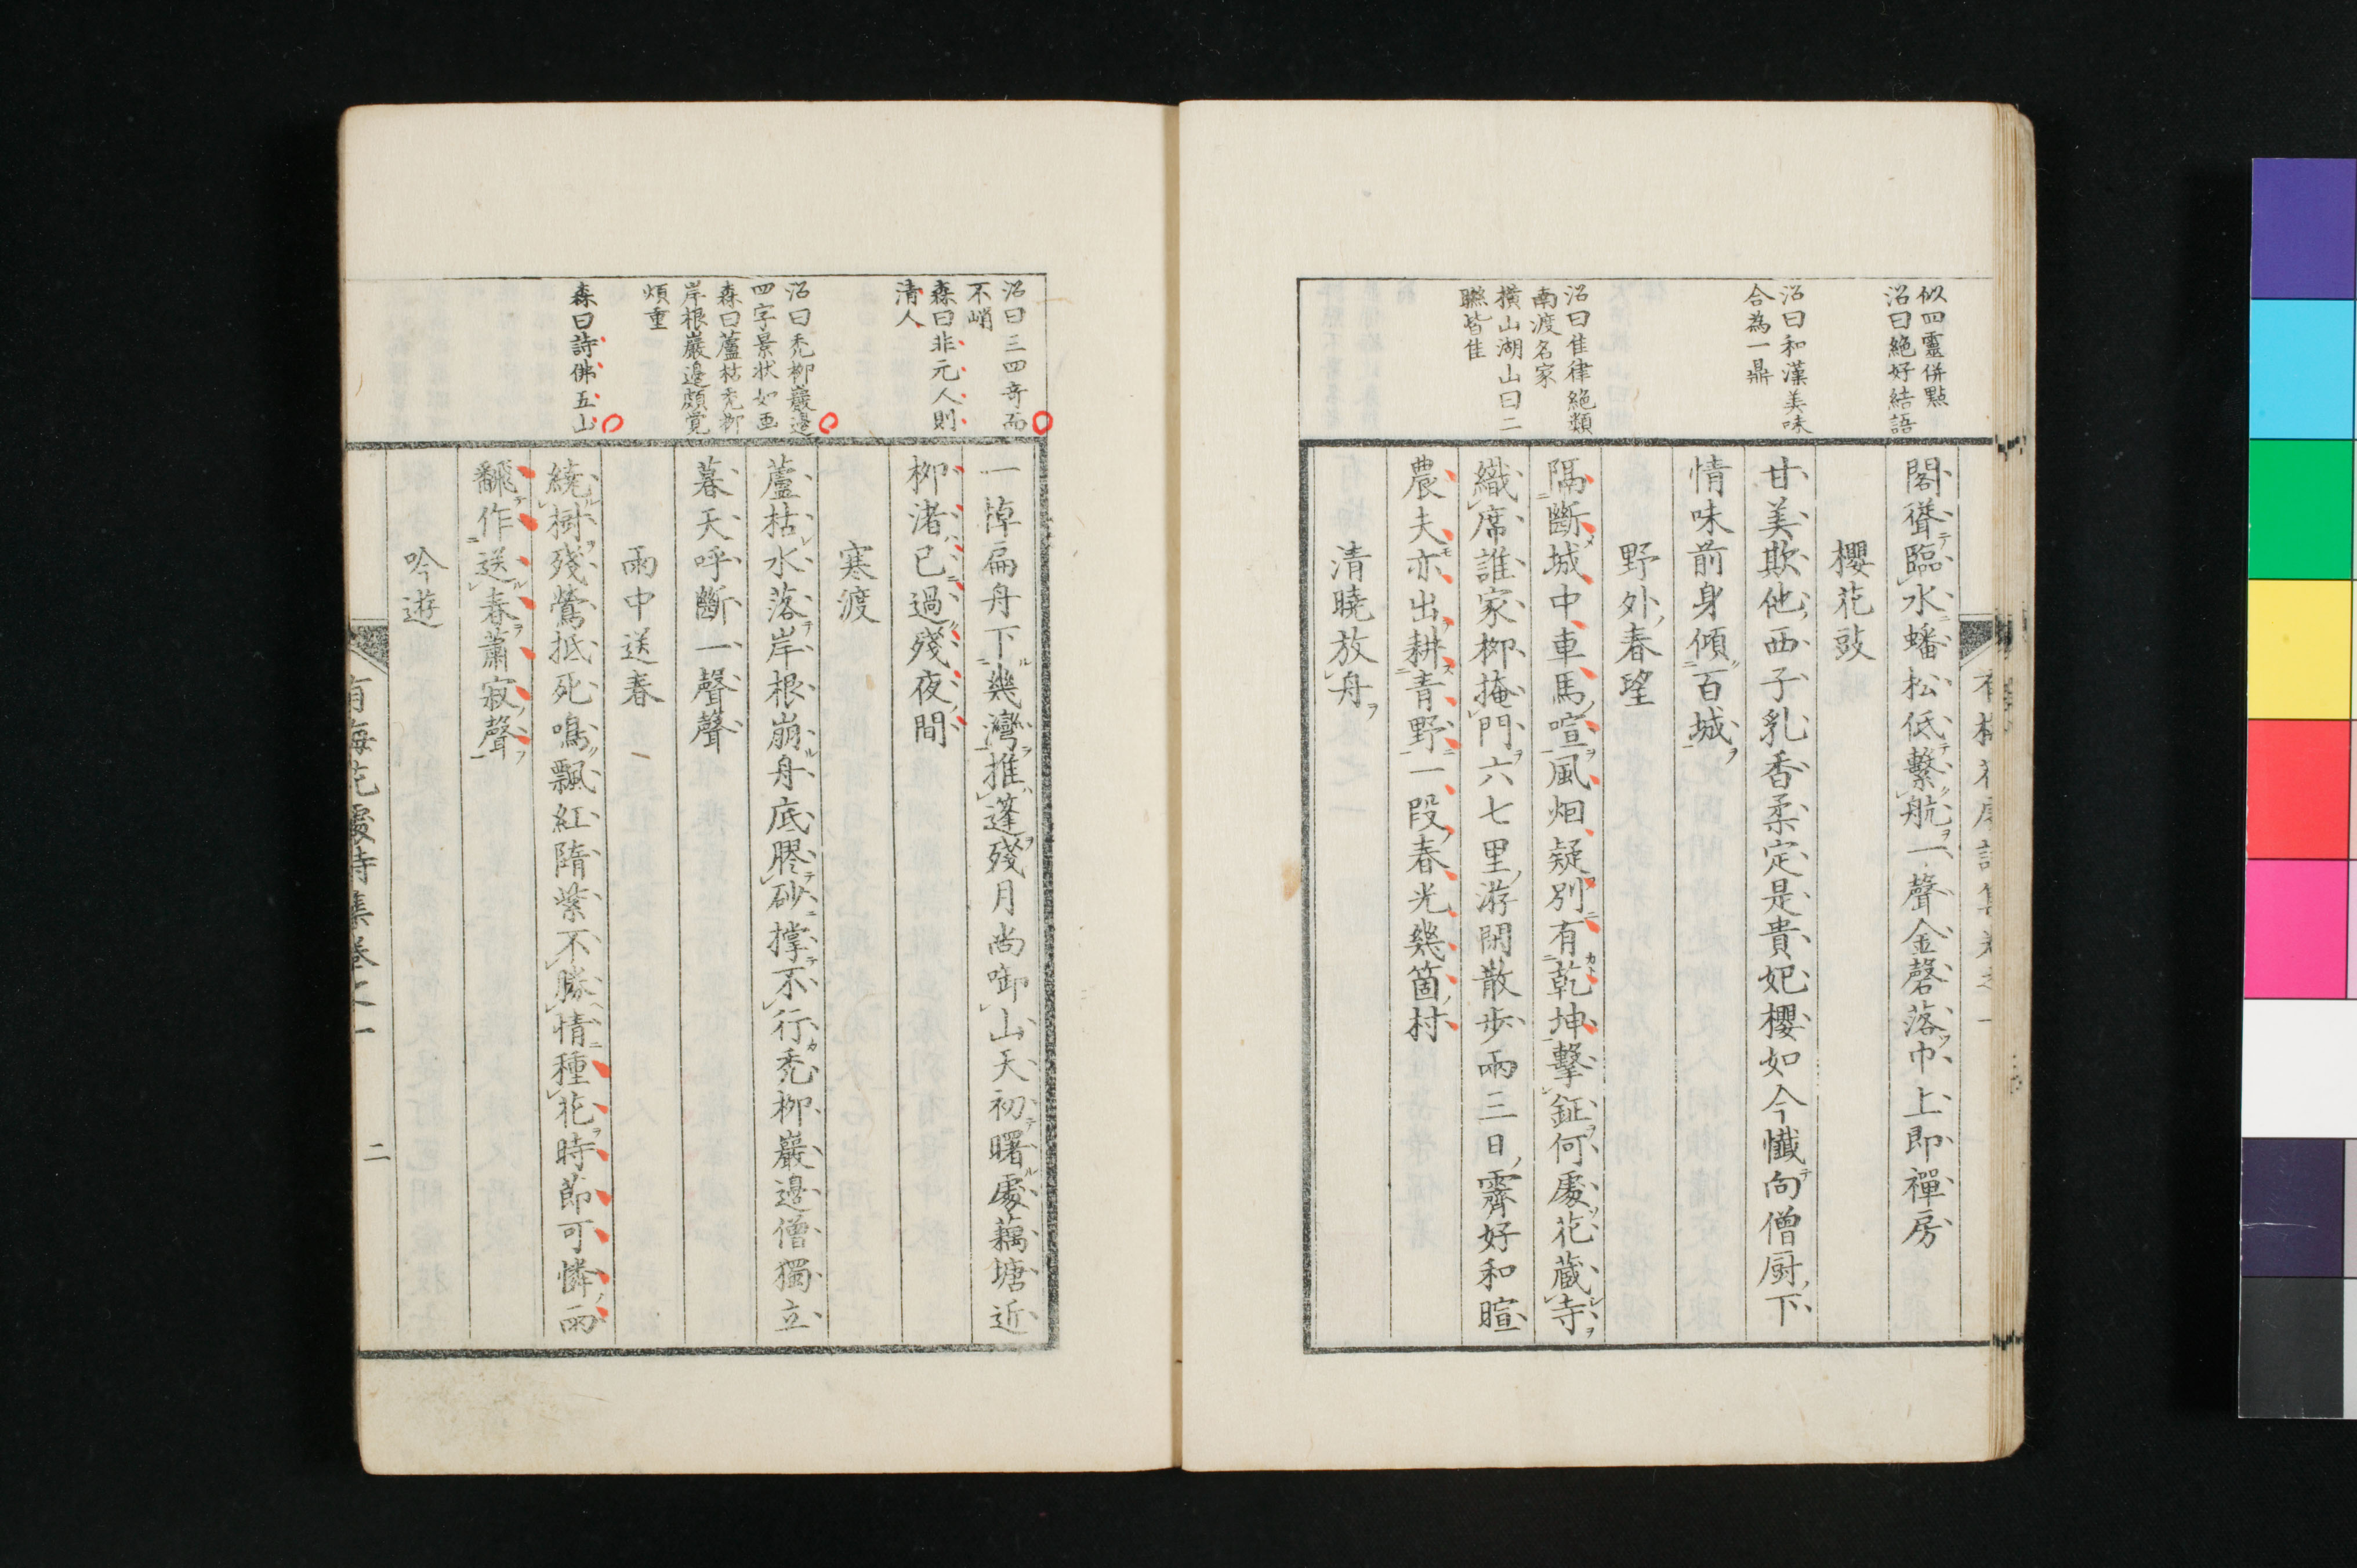 似四靈併點
沼曰絶好結語
沼曰和漢美味
合為一鼎
沼曰佳律絶類
南渡名家
横山湖山曰二
聯皆佳
閣聳臨水蟠松低繫航一聲金磬落巾上即禪房
櫻花豉
甘美欺他西子乳香柔定是貴妃櫻如今懺向僧厨下
情味前身傾百城
野外春望
隔斷城中車馬喧風烟疑別有乾坤擊鉦何處花藏寺
織席誰家柳掩門六七里游閑散步兩三日霽好和暄
農夫亦出耕青野一段春光幾箇村
清曉放舟
沼曰三四奇而
不峭
森曰非元人則
清人
沼曰禿柳巖邊
四字景状如画
森曰蘆枯禿柳
岸根巖邊頗覚
煩重
森曰詩佛五山
一棹扁舟下幾灣推蓬殘月尚啣山天初曙處藕塘近
柳渚已過殘夜間
寒渡
蘆枯水落岸根崩舟底膠砂撑不行禿柳巖邊僧獨立
暮天呼斷一聲聲
雨中送春
繞樹殘鶯抵死鳴飄紅隋紫不勝情種花時節可憐雨
飜作送春蕭寂聲
吟遊
二